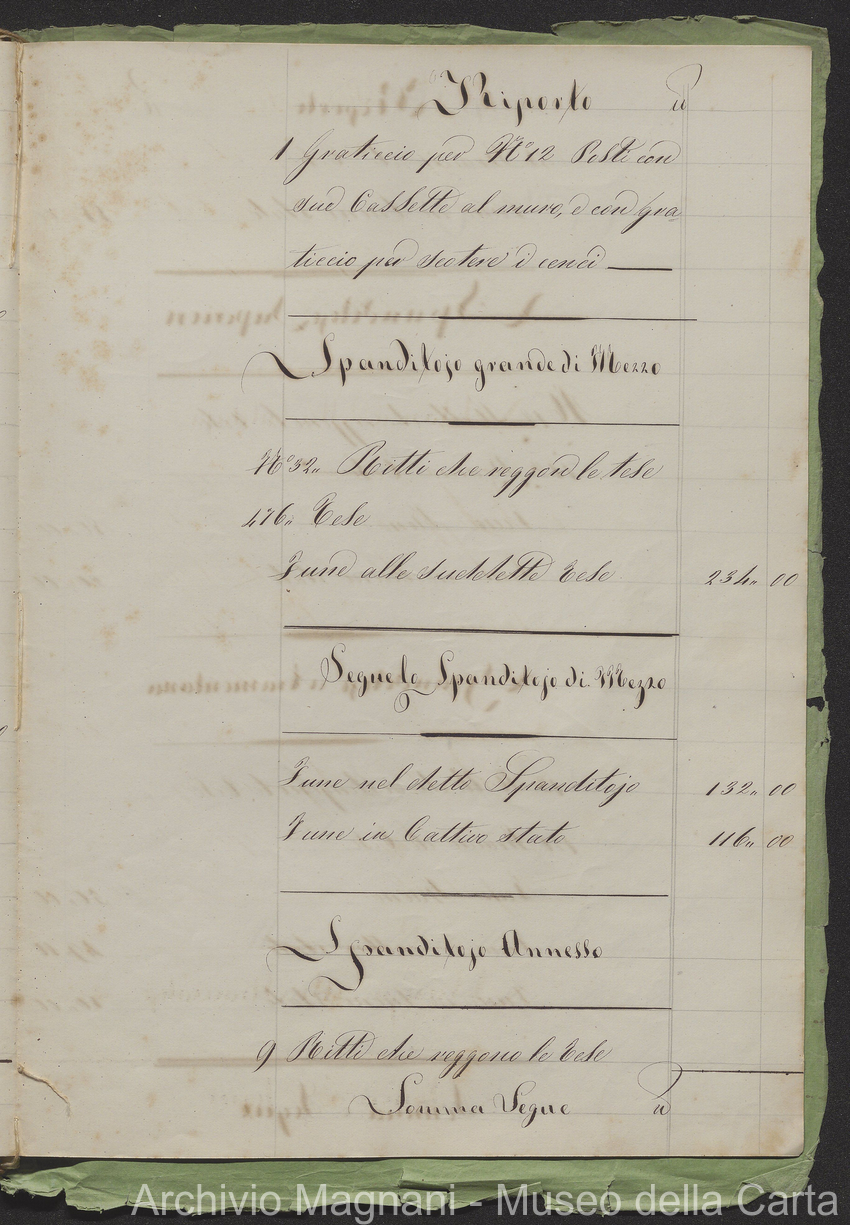 Riporto
1 Graticcio per N.° 12 Posti con
sue Cassette al muro, e con gra=
ticcio per scotere i cenci
Spanditojo grande di Mezzo
N.° 32„ Ritti che reggono le tese
476„ Tese
Fune alle suddette Tese 234„ 00
Segue lo Spanditojo di Mezzo
Fune nel detto Spanditojo 132„ 00
Fune in Cattivo stato 116„ 00
Spanditojo Annesso
9 Ritti che reggono le Tese
Somma Segue
Archivio Magnani - Museo della Carta